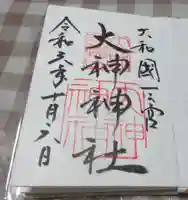 大和國一之宮
大神神社
令和三年十月六日